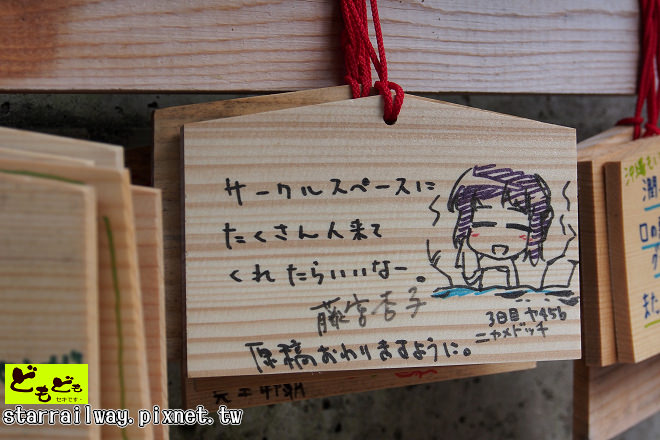 サークルスペースに
たくさん人来て
くれたらいいなー。
藤宮杏子
3日目 ヤ45b
ニャメドッチ
原稿おわりますように。
沖縄
潤
口の
また
どもども
セキです
starrailway.pixnet.tw